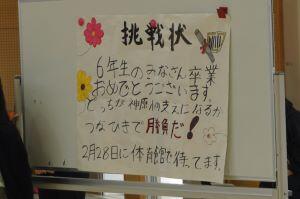 挑戦状
6年生のみなさん卒業
おめでとうございます。
どっちが神原の支えになるか
つなひきで勝負だ!
2月28日に体育館で待ってます。